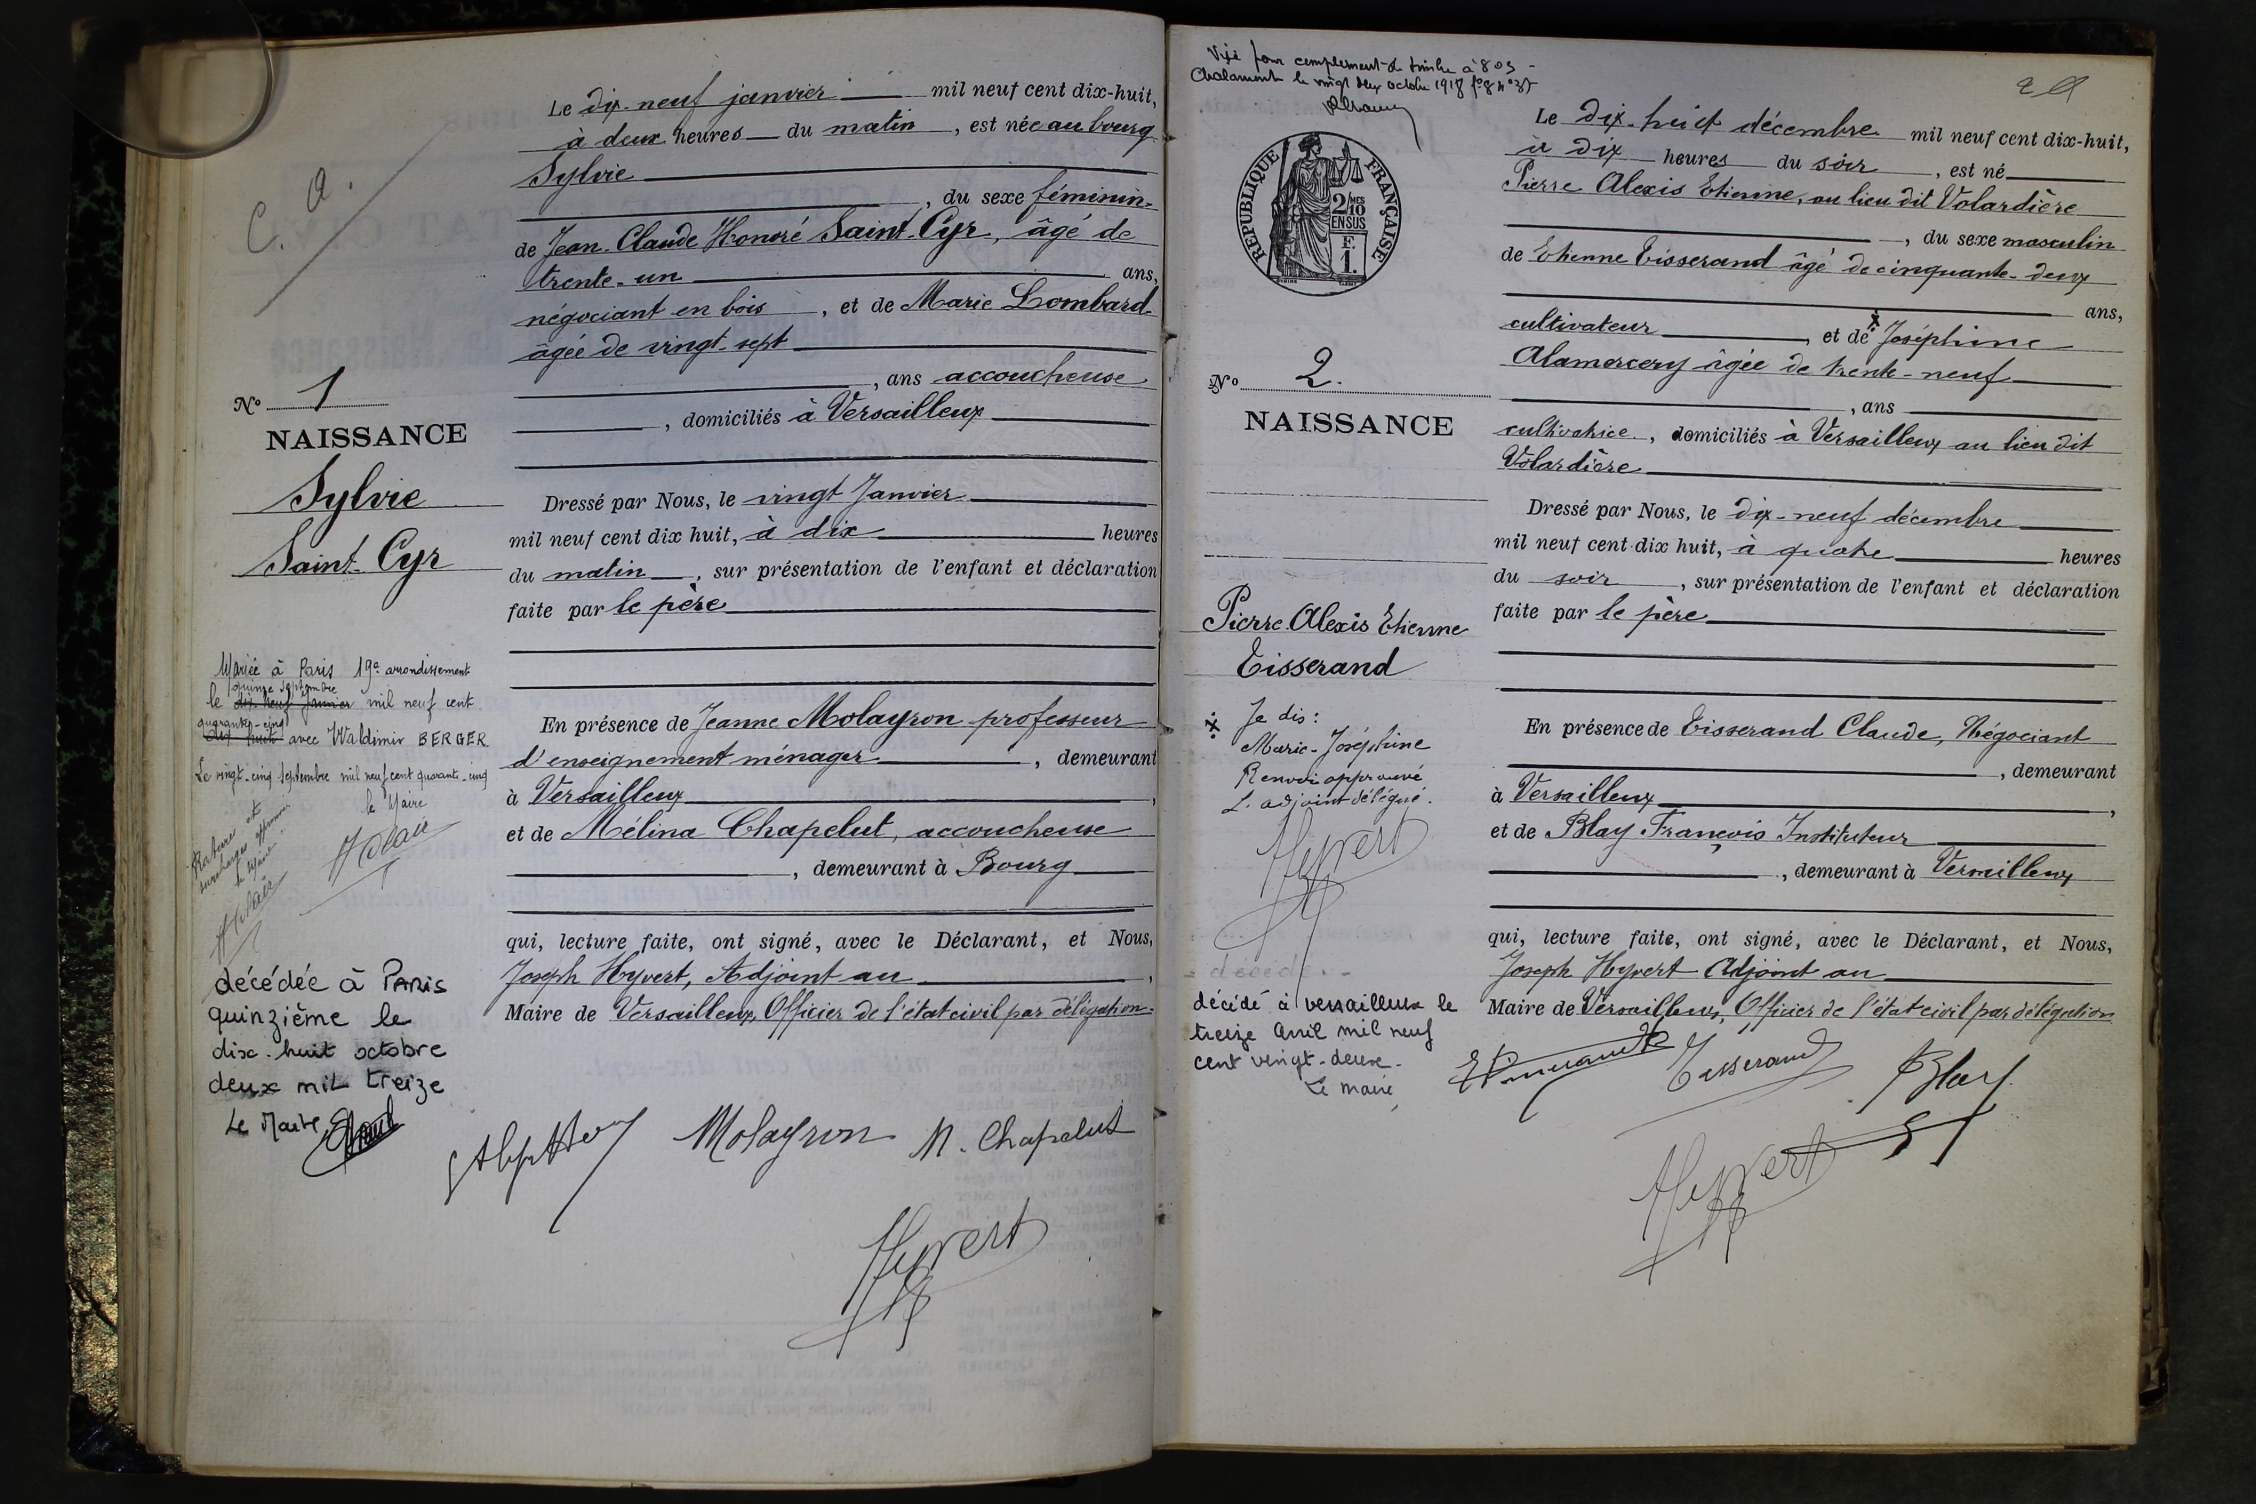 C. A.
Nº 1
NAISSANCE
Sylvie
Saint-Cyr
Mariée à Paris 19e arrondissement
quinze septembre
le dix neuf janvier mil neuf cent
quarante-cinq
dix huit avec Waldimir BERGER
Le vingt-cinq septembre mil neuf cent quarante-cinq
le Maire
Rature et
surcharge
le Maire
décédée à PARIS
quinzième le
dix-huit octobre
deux mil treize
Le Maire,
Le dix-neuf janvier mil neuf cent dix-huit,
à deux heures du matin, est née au bourg
Sylvie
, du sexe féminin
de Jean-Claude Honoré Saint-Cyr, âgé de
trente-un ans,
négociant en bois, et de Marie Lombard
âgée de vingt-sept
, ans accoucheuse
, domiciliés à Versailleux
Dressé par Nous, le vingt Janvier
mil neuf cent dix huit, à dix heures
du matin, sur présentation de l'enfant et déclaration
faite par le père
En présence de Jeanne Molayron professeur
d'enseignement ménager, demeurant
à Versailleux,
et de Mélina Chapelut, accoucheuse
, demeurant à Bourg
qui, lecture faite, ont signé, avec le Déclarant, et Nous,
Joseph Hyvert, Adjoint au,
Maire de Versailleux, Officier de l'état civil par délégation
Molayron M. Chapelut
Hyvert
Visé pour complément de timbre à 80
Chalamont le vingt deux octobre 1918
RÉPUBLIQUE FRANÇAISE
2/10 MES
EN SUS
F.
1.
Nº 2.
NAISSANCE
Pierre Alexis Etienne
Tisserand
Je dis:
Marie-Joséphine
Renvoi approuvé
L'adjoint délégué.
Hyvert
décédé
décédé à versailleux le
treize Avril mil neuf
cent vingt-deux.
Le maire,
Le dix-huit décembre mil neuf cent dix-huit,
à dix heures du soir, est né
Pierre Alexis Etienne, au lieu dit Volardière
, du sexe masculin
de Etienne Tisserand âgé de cinquante-deux
ans,
cultivateur, et de Joséphine
Alamercery âgée de trente-neuf
, ans
cultivatrice, domiciliés à Versailleux au lieu dit
Volardière
Dressé par Nous, le dix-neuf décembre
mil neuf cent dix huit, à quatre heures
du soir, sur présentation de l'enfant et déclaration
faite par le père
En présence de Tisserand Claude, Négociant
, demeurant
à Versailleux,
et de Blay François Instituteur
, demeurant à Versailleux
qui, lecture faite, ont signé, avec le Déclarant, et Nous,
Joseph Hyvert Adjoint au
Maire de Versailleux, Officier de l'état civil par délégation
Tisserand Blay
Hyvert